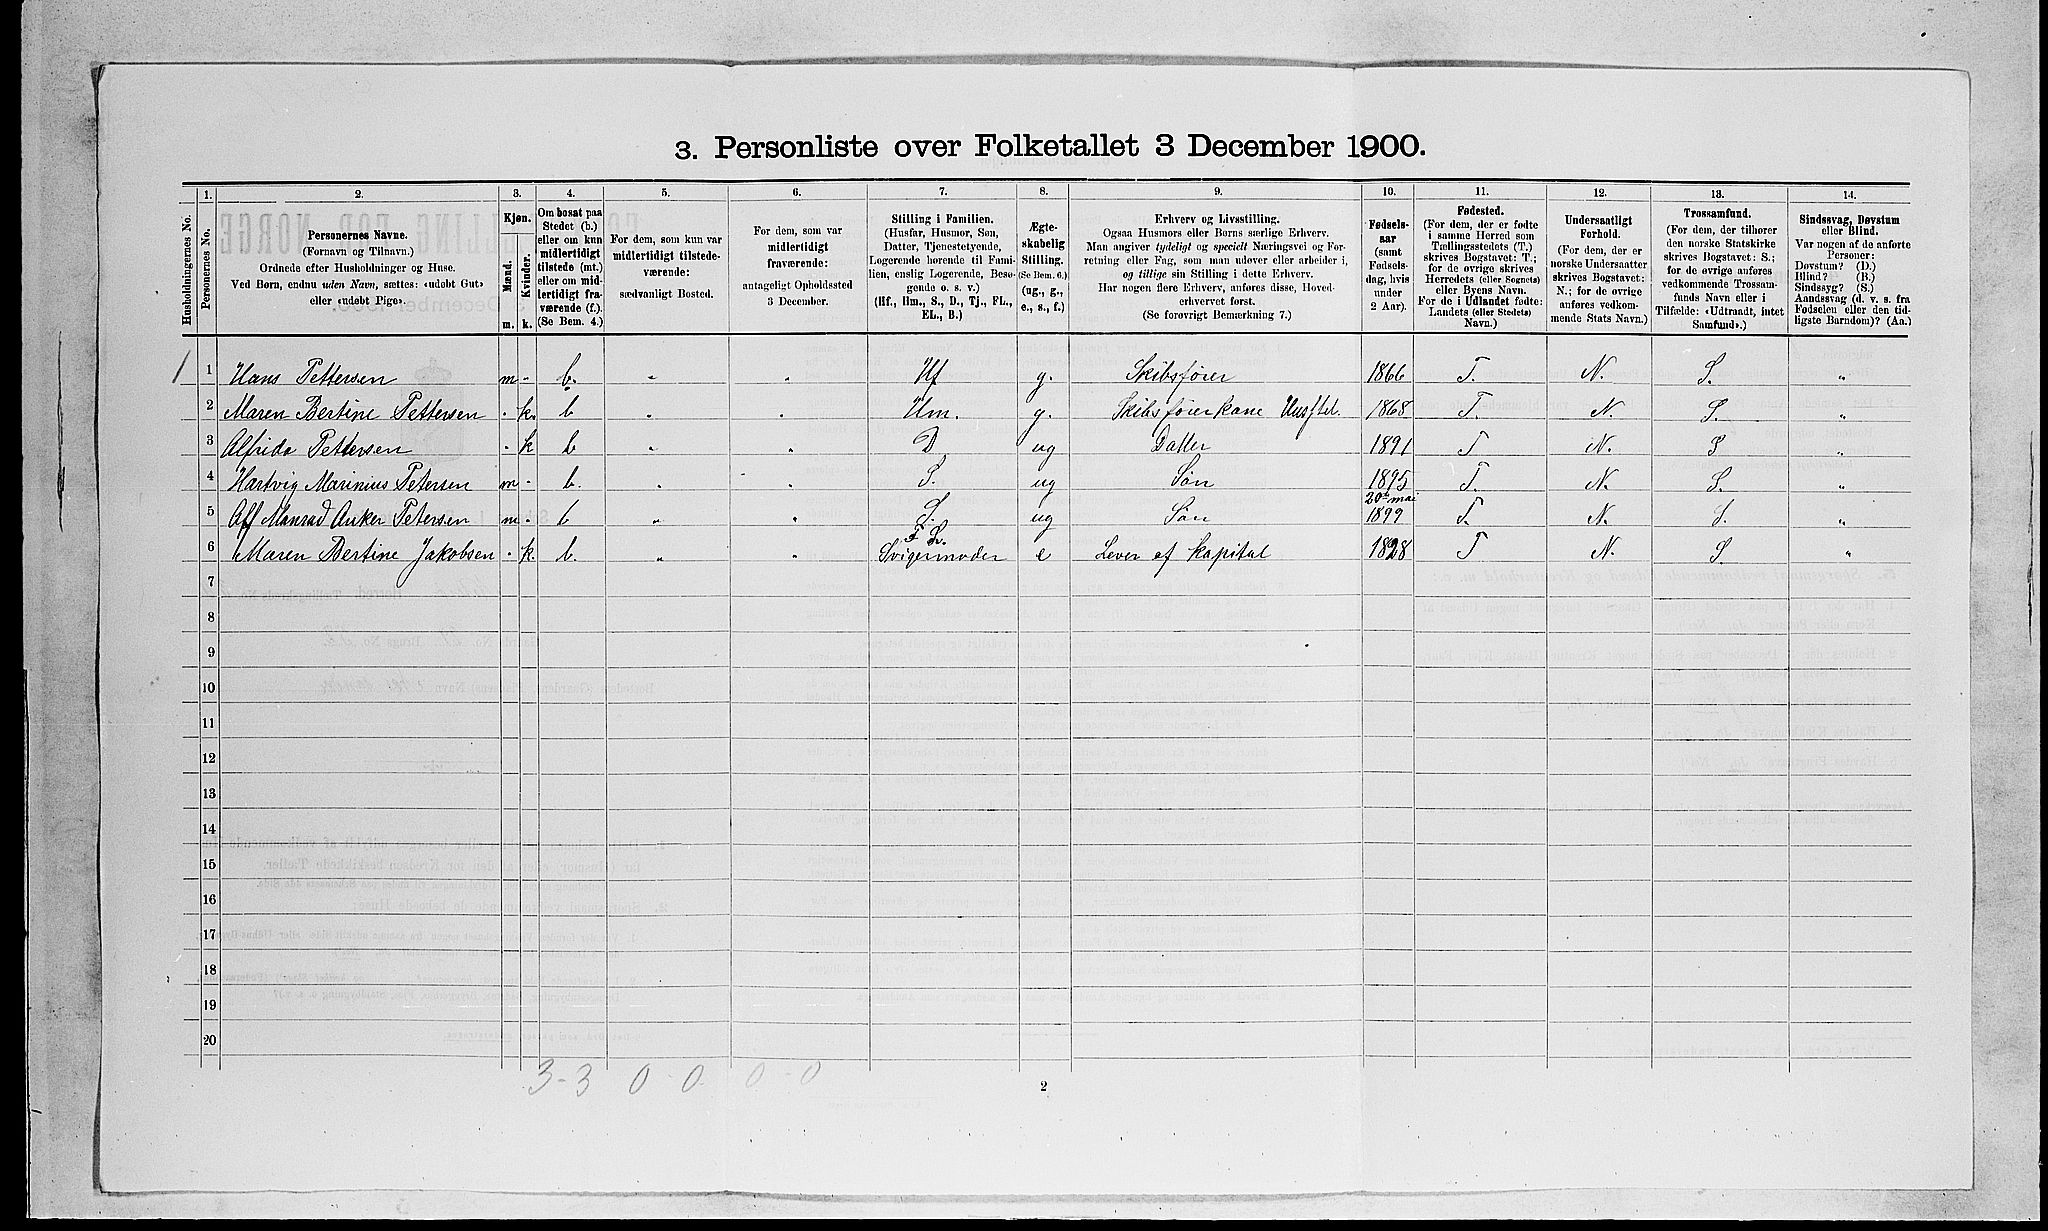 3. Personliste over Folketallet 3 December 1900.
Husholdningernes No.
1. Personernes No.
2. Personernes Navne.
(Fornavn og Tilnavn.)
Ordnede efter Husholdninger og Huse.
Ved Børn, endnu uden Navn, sættes: «udøbt Gut»
eller «udøbt Pige».
3. Kjøn.
Mænd. m.
Kvinder. k.
4. Om bosat paa
Stedet (b.)
eller om kun
midlertidigt
tilstede (mt.)
eller om mid-
lertidigt fra-
værende (f.).
(Se Bem. 4.)
5. For dem, som kun var
midlertidigt tilstede-
værende:
sædvanligt Bosted.
6. For dem, som var
midlertidigt
fraværende:
antageligt Opholdssted
3 December.
7. Stilling i Familien.
(Husfar, Husmor, Søn,
Datter, Tjenestetyende,
Logerende hørende til Fami-
lien, enslig Logerende, Besø-
gende o. s. v.)
(Hf., Hm., S., D., Tj., FL.,
EL., B.)
8. Ægte-
skabelig
Stilling.
(Se Bem. 6.)
(ug., g.,
e., s., f.)
9. Erhverv og Livsstilling.
Ogsaa Husmors eller Børns særlige Erhverv.
Man angiver tydeligt og specielt Næringsvei og For-
retning eller Fag, som man udøver eller arbeider i,
og tillige sin Stilling i dette Erhverv.
Har nogen flere Erhverv, anføres disse, Hoved-
erhvervet først.
(Se forøvrigt Bemærkning 7.)
10. Fødsels-
aar
(samt
Fødsels-
dag, hvis
under
2 Aar).
11. Fødested.
(For dem, der er fødte
i samme Herred som
Tællingsstedets (T.)
skrives Bogstavet: T.;
for de øvrige skrives
Herredets (eller Sognets)
eller Byens Navn.
For de i Udlandet fødte:
Landets (eller Stedets)
Navn.)
12. Undersaatligt
Forhold.
(For dem, der er
norske Undersaatter
skrives Bogstavet:
N.; for de øvrige
anføres vedkom-
mende Stats Navn.)
13. Trossamfund.
(For dem, der tilhører
den norske Statskirke
skrives Bogstavet: S.;
for de øvrige anføres
vedkommende Trossam-
funds Navn eller i
Tilfælde: «Udtraadt, intet
Samfund».)
14. Sindssvag, Døvstum
eller Blind.
Var nogen af de anførte
Personer:
Døvstum? (D.)
Blind? (B.)
Sindssyg? (S.)
Aandssvag (d. v. s. fra
Fødselen eller den tid-
ligste Barndom)? (Aa.)
1 1 Hans Pettersen m - b. " " Hf g. Skibsfører 1866 T. N. S. "
2 Maren Bertine Pettersen - k. b " " Hm. g. Skibsførerkone Husstel. 1868 T. N. S. "
3 Alfrida Pettersen - k b " " D ug Datter 1891 T N. S "
4 Hartvig Marinius Petersen m - b. " " S. ug Søn 1895 T. N. S. "
20de mai
5 Alf Monrad Anker Petersen m - b " " S. ug Søn 1899 T. N. S. "
F L.
6 Maren Bertine Jakobsen - k. b. " " Svigermoder e Lever af Kapital 1828 T N. S. "
7
8
9
10
11
12
13
14
15
16
17
18
19
20
3-3 0-0 0-0
2